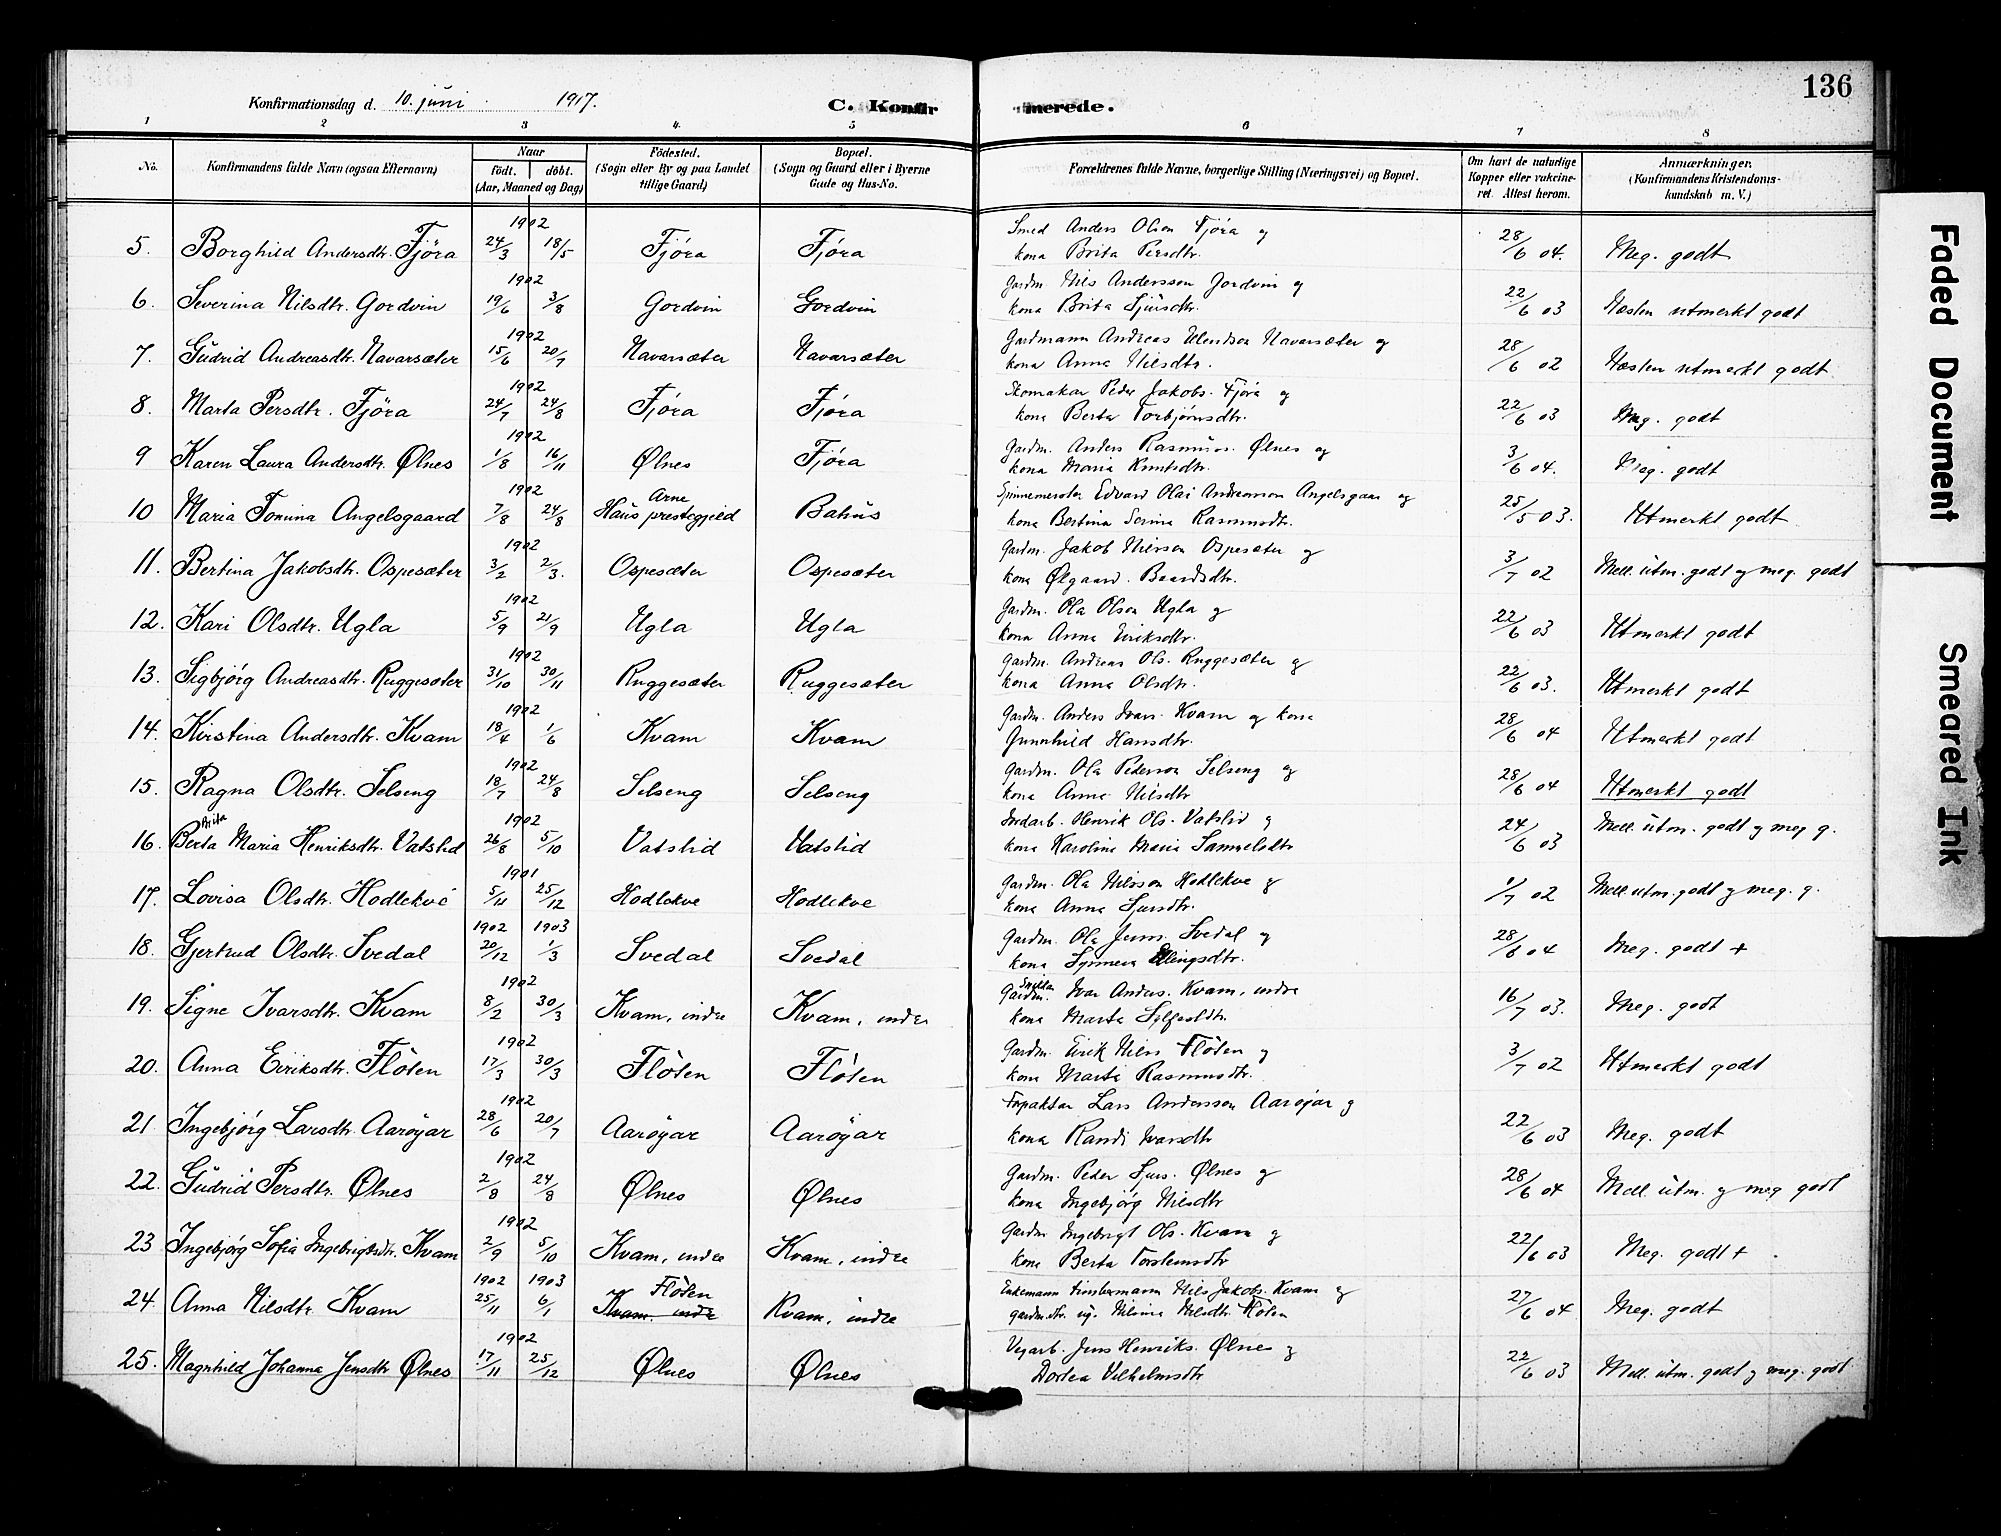 136
Konfirmationsdag d. 10. juni 1917.
C. Konfirmerede.
1 2 3 4. 5 6 7 8
No. Konfirmandens fulde Navn (ogsaa Efternavn) Naar födt. döbt. (Aar, Maaned og Dag) Födested. (Sogn eller By og paa Landet tillige Gaard) Bopæl. (Sogn og Gaard eller i Byerne Gade og Hus-No. Forældrenes fulde Navne, borgerlige Stilling (Næringsvei) og Bopæl. Om havt de naturlige Kopper eller vakcineret. Attest herom. Anmærkninger. (Konfirmandens Kristendomskundskab m. V.)
1902 Smed Anders Olson Fjöra og
5. Borghild Andersdtr. Fjöra 24/3 18/5 Fjöra Fjöra kona Brita Persdtr. 28/6 04. Meg. godt
1902 Gardm. Nils Andersson Gordvin og
6. Severina Nilsdtr. Gordvin 19/6 3/8 Gordvin Gordvin kona Brita Sjursdtr. 22/6 03 Næsten utmerkt godt
1902 Gardmann Andreas Navarsæter og
7. Gudrid Andreasdtr. Navarsæter 15/6 20/7 Navarsæter Navarsæter kona Anna Nilsdtr. 28/6 02 Næsten utmerkt godt
1902 Skomakar Peder Jakobs. Fjöra og
8. Marta Persdtr. Fjöra 24/7 24/8 Fjöra Fjöra kona Berta Torbjörnsdtr. 22/6 03 Meg. godt
1902 Gardm. Anders Rasmus. Ølnes og
9 Karen Laura Andersdtr. Ølnes 1/8 16/11 Ølnes Fjöra kona Maria Knutsdtr. 3/6 04. Meg. godt
1902 Arne Spinnemester Edvard Olai Andreasson Angelsgaar og
10 Maria Tonina Angelsgaard 7/8 24/8 Haus prestegjeld Bahus kona Bertina Serina Rasmusdtr. 25/5 03. Utmerkt godt
1902 Gardm. Jakob Nilsson Ospesæter og
11. Bertina Jakobsdtr. Ospesæter 3/2 2/3. Ospesæter Ospesæter kona Ølgaard. Baardsdtr. 3/7 02 Mell. utm. godt og meg. godt
1902 Gardm. Ola Olson Ugla og
12. Kari Olsdtr. Ugla 5/9 21/9 Ugla Ugla kona Anna Eiriksdtr. 22/6 03 Utmerkt godt
1902 Gardm. Andreas Ols. Ruggesæter og
13. Sigbjörg Andreasdtr. Ruggesæter 31/10 30/11 Ruggesæter Ruggesæter kona Anna Olsdtr. 22/6 03. Utmerkt godt
1902 Gardm. Anders Ivars. Kvam og kona
14. Kirstina Andersdtr. Kvam 18/4 1/6 Kvam Kvam Gunnhild Hansdtr. 28/6 04 Utmerkt godt
1902 Gardm. Ola Pederson Selseng og
15. Ragna Olsdtr. Selseng 18/7 24/8 Selseng Selseng kona Anna Nilsdtr 28/6 04 Utmerkt godt
Brita 1902 Jordarb. Henrik Ols. Vatslid og
16. Berta Maria Henriksdtr. Vatslid 26/8 5/10 Vatslid Vatslid kona Karolina Maria Samuelsdtr 24/6 03 Mell. utm. godt og meg g.
1901 Gardm. Ola Nilsson Hodlekve og
17. Lovisa Olsdtr. Hodlekve 5/11 25/12 Hodlekve Hodlekve kona Anna Sjursdtr. 1/7 02 Mell. utm. godt og meg. g.
1902 1903 Gardm. Ola Jens. Svedal og
18. Gjertrud Olsdtr. Svedal 20/12 1/3 Svedal Svedal kona Synneva Ellingsdtr. 28/6 04 Meg. godt +
1902 Gardm. Ivar Anders. Kvam, indre
19. Signe Ivarsdtr. Kvam 8/2 30/3 Kvam, indre Kvam, indre kona Marta 16/7 03. Meg. godt
1902 Gardm. Eirik Nilss Flöten og
20. Anna Eiriksdtr. Flöten 17/3 30/3 Flöten Flöten kona Marta Rasmusdtr. 3/7 02 Utmerkt godt
1902 Forpaktar Lars Andersson Aaröyar og
21 Ingebjörg Larsdtr. Aaröyar 28/6 20/7 Aaröyar Aaröyar kona Randi Ivarsdtr 22/6 03 Meg. godt
1902 Gardm. Peder Sjurs. Ølnes og
22. Gudrid Persdtr. Ølnes 2/8 24/8 Ølnes Ølnes kona Ingebjörg Nilsdtr 28/6 04 Mell. utm. og meg godt
1902 Gardm. Ingebrigt Ols. Kvam og
23 Ingebjörg Sofia Ingebrigtsdtr. Kvam 2/9 5/10 Kvam, indre Kvam, indre kona Berta Torsteinsdtr 22/6 03 Meg. godt +
1902 1903 Flöten Enkemann timbermann Nils Jakobs. Kvam og
24. Anna Nilsdtr. Kvam 25/11 6/1 Kvam indre Kvam, indre gardm.dtr. ug. Nilsdtr. Flöten 27/6 04 Meg. godt
1902 Vegarb. Jens Henriks. Ølnes og
25. Magnhild Johanna Jensdtr Ølnes 17/11 25/12 Ølnes Ølnes Dortea Vilhelmsdtr 22/6 03 Mell. utm. godt og meg. godt
Faded Document
Smeared Ink